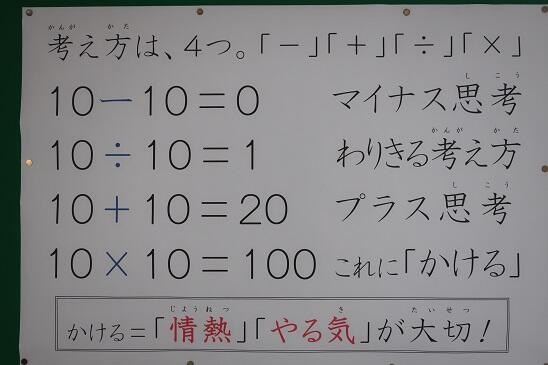 考え方は、4つ。「－」「＋」「÷」「×」
10－10＝0 マイナス思考
10÷10＝1 わりきる考え方
10＋10＝20 プラス思考
10×10＝100 これに「かける」
かける＝「情熱」「やる気」が大切！